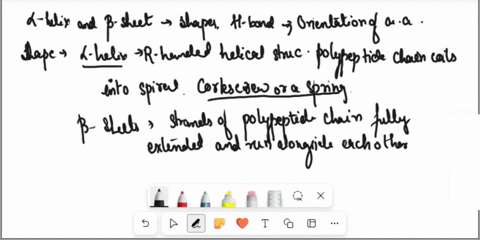 α-helix and β-sheet → shapes, H-bond → Orientation of a.a.
Shape → α-helix → R-handed helical struc. polypeptide chain coils
into spiral. Corkscrew or a spring
β-Sheets → strands of polypeptide chain fully
extended and run alongside each other